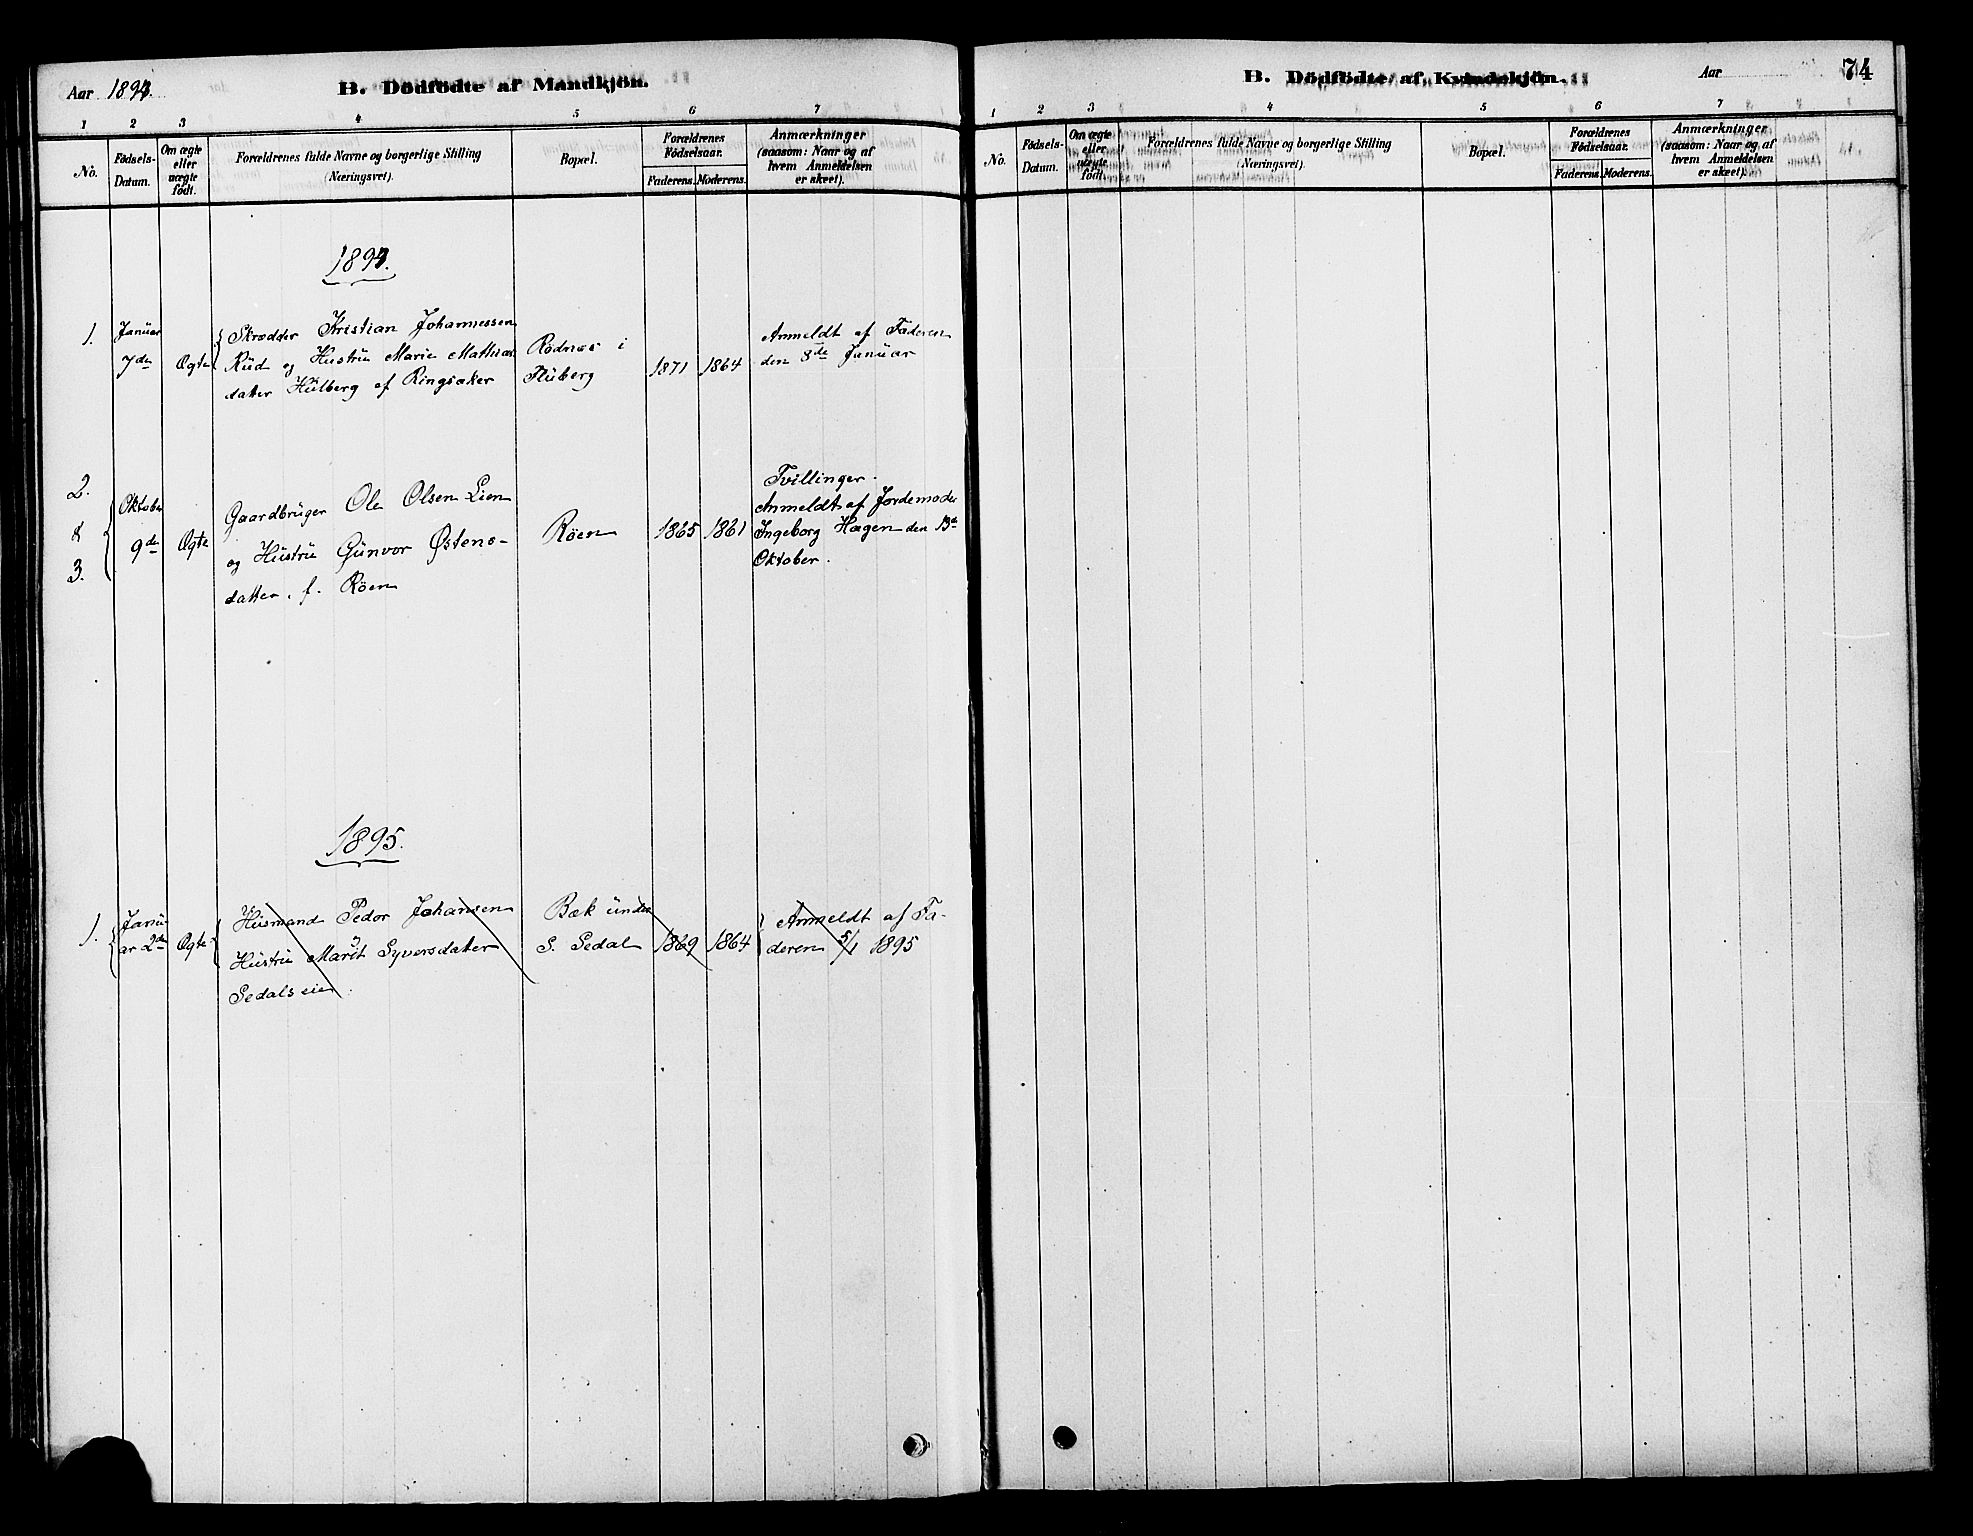 Aar 1894.
B. Dödfödte af Mandkjön.
1 2 3 4 5 6 7
No.
Födsels-
Datum.
Om ægte
eller
uægte
födt.
Forældrenes fulde Navne og borgerlige Stilling
(Næringsvei).
Bopæl.
Forældrenes
Födselsaar.
Faderens. Moderens.
Anmærkninger
(saasom: Naar og af
hvem Anmeldelsen
er skeet).
1.
Januar
7de
Ægte
Skrædder Kristian Johannessen
Rud og Hustru Marie Mathias
datter Hulberg af Ringsaker
Rødnes i
Fluberg
1871
1864
Anmeldt af Faderen
den 8de Januar
2.
&
3.
Oktober
9de
Ægte
Gaardbruger Ole Olsen Lien
og Hustru Gunvor Østens-
datter. f. Røen
Røen
1865
1861
Tvillinger.
Anmeldt af Jordemoder
Ingeborg Hagen den 13de
Oktober.
1895.
1.
Janu-
ar 2de
Ægte
Husmand Peder Johansen
Hustru Marit Syversdatter
Sedalseie
Bæk under
S. Sedal
1869
1864
Anmeldt af Fa-
deren 5/1 1895
B. Dödfödte af Kvindekjön.
Aar
74
1 2 3 4 5 6 7
No.
Födsels-
Datum.
Om ægte
eller
uægte
födt.
Forældrenes fulde Navne og borgerlige Stilling
(Næringsvei).
Bopæl.
Forældrenes
Födselsaar.
Faderens. Moderens.
Anmærkninger
(saasom: Naar og af
hvem Anmeldelsen
er skeet).